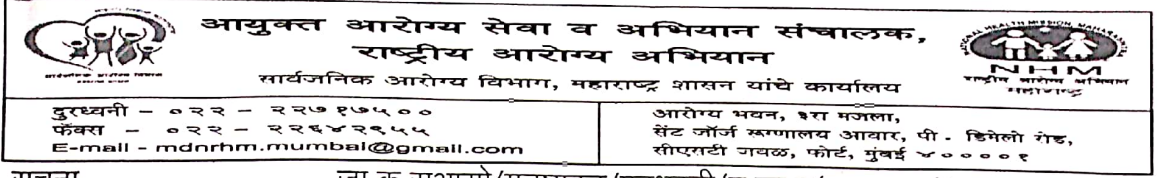 आयुक्त आरोग्य सेवा व अभियान संचालक,
राष्ट्रीय आरोग्य अभियान
सार्वजनिक आरोग्य विभाग, महाराष्ट्र शासन यांचे कार्यालय
NATIONAL HEALTH MISSION, MAHARASHTRA
NHM
राष्ट्रीय आरोग्य अभियान
महाराष्ट्र
दुरध्वनी – ०२२ – २२७१७५००
फॅक्स – ०२२ – २२६४२९५५
E-mail - mdnrhm.mumbai@gmail.com
आरोग्य भवन, ३रा मजला,
सेंट जॉर्ज रूग्णालय आवार, पी - डिमेलो रोड,
सीएसटी जवळ, फोर्ट, मुंबई ४००००१